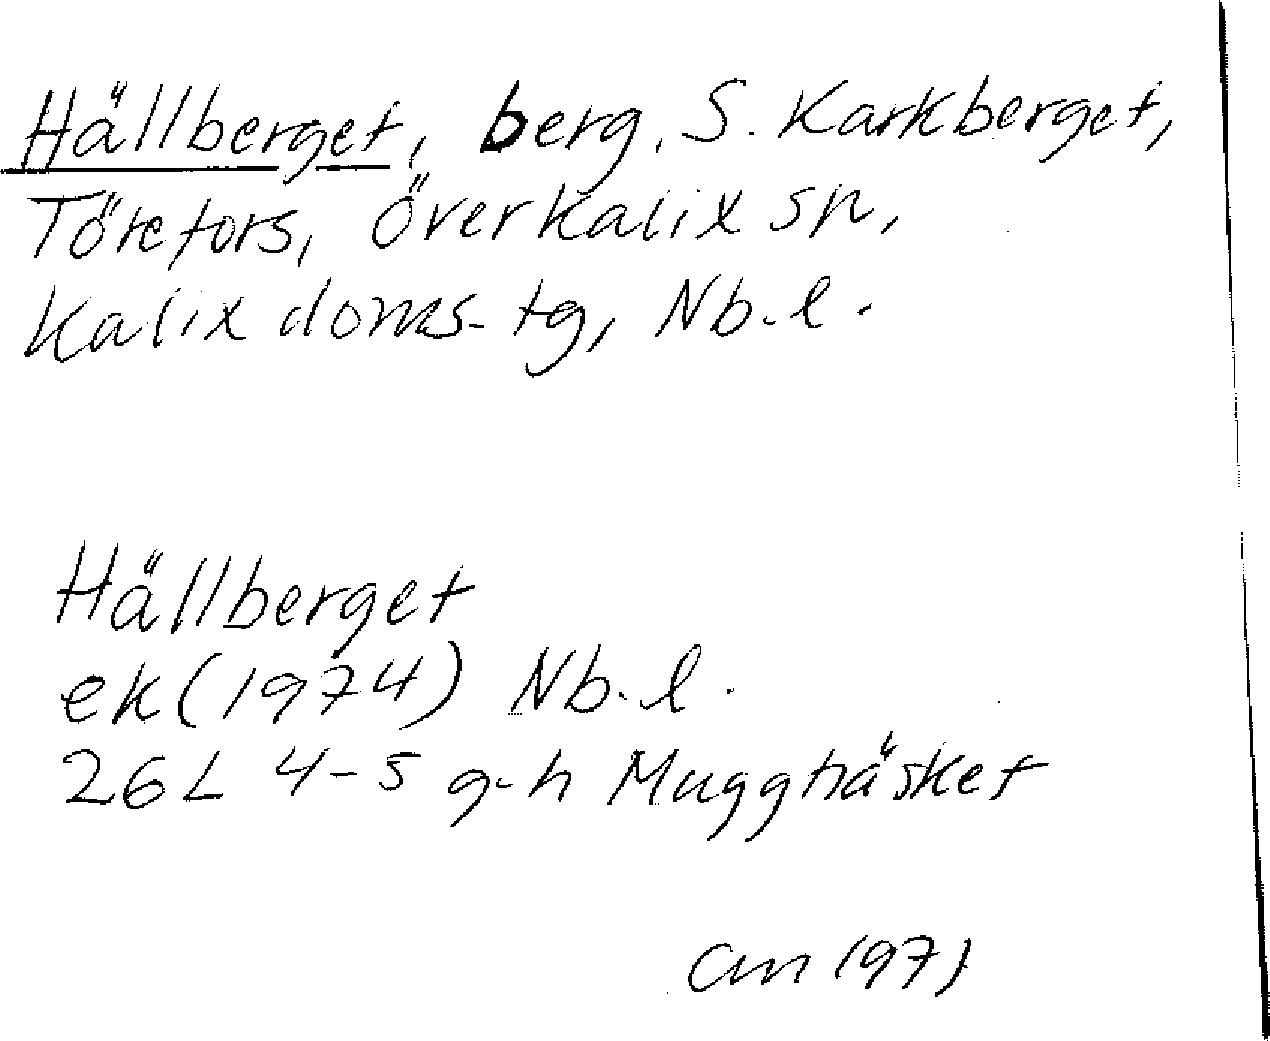 Hällberget, berg, S. Karkberget,
Törefors, Överkalix sn,
Kalix doms. tg, Nb. l.
Hällberget
ek (1974) Nb. l.
26L 4-5 g-h Muggträsket
(97)